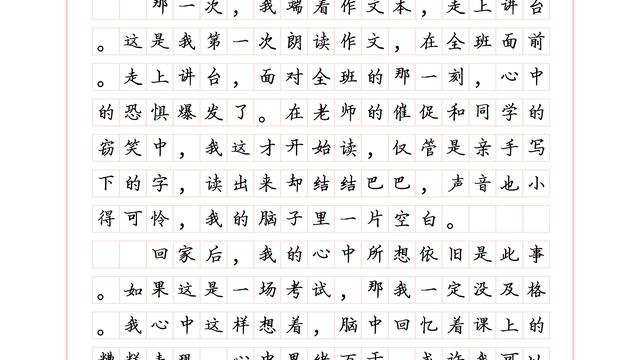 那一次，我端着作文本，走上讲台
。这是我第一次朗读作文，在全班面前
。走上讲台，面对全班的那一刻，心中
的恐惧爆发了。在老师的催促和同学的
窃笑中，我这才开始读，仅管是亲手写
下的字，读出来却结结巴巴，声音也小
得可怜，我的脑子里一片空白。
回家后，我的心中所想依旧是此事
。如果这是一场考试，那我一定没及格
。我心中这样想着，脑中回忆着课上的
糟糕表现，心里思绪万千，或许我可以